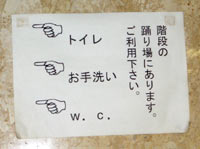 階段の
踊り場にあります。
ご利用下さい。
トイレ
お手洗い
w. c.